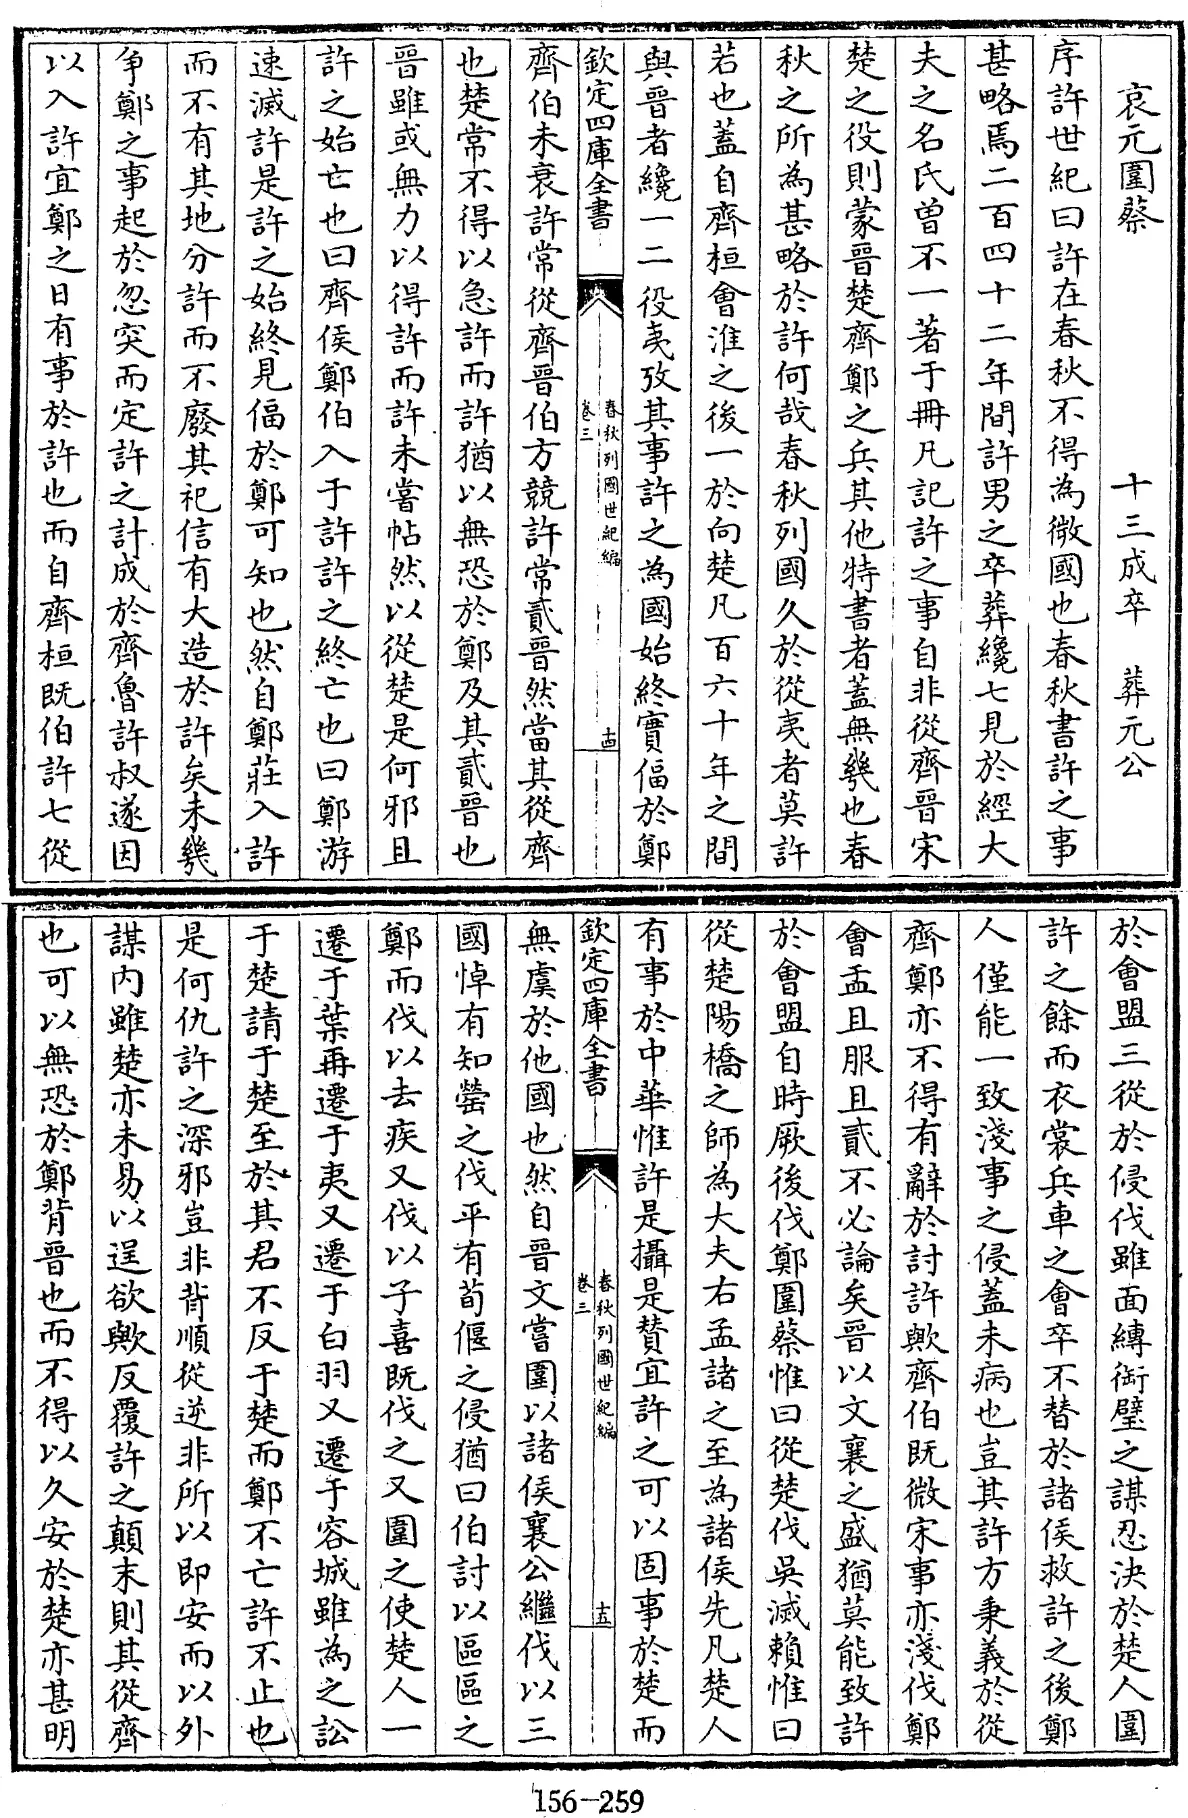 哀元圍蔡　十三成卒　葬元公
序許世紀曰許在春秋不得為微國也春秋書許之事
甚略焉二百四十二年間許男之卒葬纔七見於經大
夫之名氏曾不一著于冊凡記許之事自非從齊晉宋
楚之役則蒙晉楚齊鄭之兵其他特書者蓋無幾也春
秋之所為甚略於許何哉春秋列國久於從夷者莫許
若也蓋自齊桓會淮之後一於向楚凡百六十年之間
與晉者纔一二役夷攷其事許之為國始終實偪於鄭
欽定四庫全書
春秋列國世紀編
卷三
十四
齊伯未衰許常從齊晉伯方競許常貳晉然當其從齊
也楚常不得以急許而許猶以無恐於鄭及其貳晉也
晉雖或無力以得許而許未嘗帖然以從楚是何邪且
許之始亡也曰齊侯鄭伯入于許許之終亡也曰鄭游
速滅許是許之始終見偪於鄭可知也然自鄭莊入許
而不有其地分許而不廢其祀信有大造於許矣未幾
爭鄭之事起於忽突而定許之計成於齊魯許叔遂因
以入許宜鄭之日有事於許也而自齊桓既伯許七從
於會盟三從於侵伐雖面縛銜璧之謀忍決於楚人圍
許之餘而衣裳兵車之會卒不替於諸侯救許之後鄭
人僅能一致淺事之侵蓋未病也豈其許方秉義於從
齊鄭亦不得有辭於討許歟齊伯既微宋事亦淺伐鄭
會盂且服且貳不必論矣晉以文襄之盛猶莫能致許
於會盟自時厥後伐鄭圍蔡惟曰從楚伐吳滅賴惟曰
從楚陽橋之師為大夫右孟諸之至為諸侯先凡楚人
有事於中華惟許是攝是贊宜許之可以固事於楚而
欽定四庫全書
春秋列國世紀編
卷三
十五
無虞於他國也然自晉文嘗圍以諸侯襄公繼伐以三
國悼有知罃之伐平有荀偃之侵猶曰伯討以區區之
鄭而伐以去疾又伐以子喜既伐之又圍之使楚人一
遷于葉再遷于夷又遷于白羽又遷于容城雖為之訟
于楚請于楚至於其君不反于楚而鄭不亡許不止也
是何仇許之深邪豈非背順從逆非所以即安而以外
謀内雖楚亦未易以逞欲歟反覆許之顛末則其從齊
也可以無恐於鄭背晉也而不得以久安於楚亦甚明
156-259